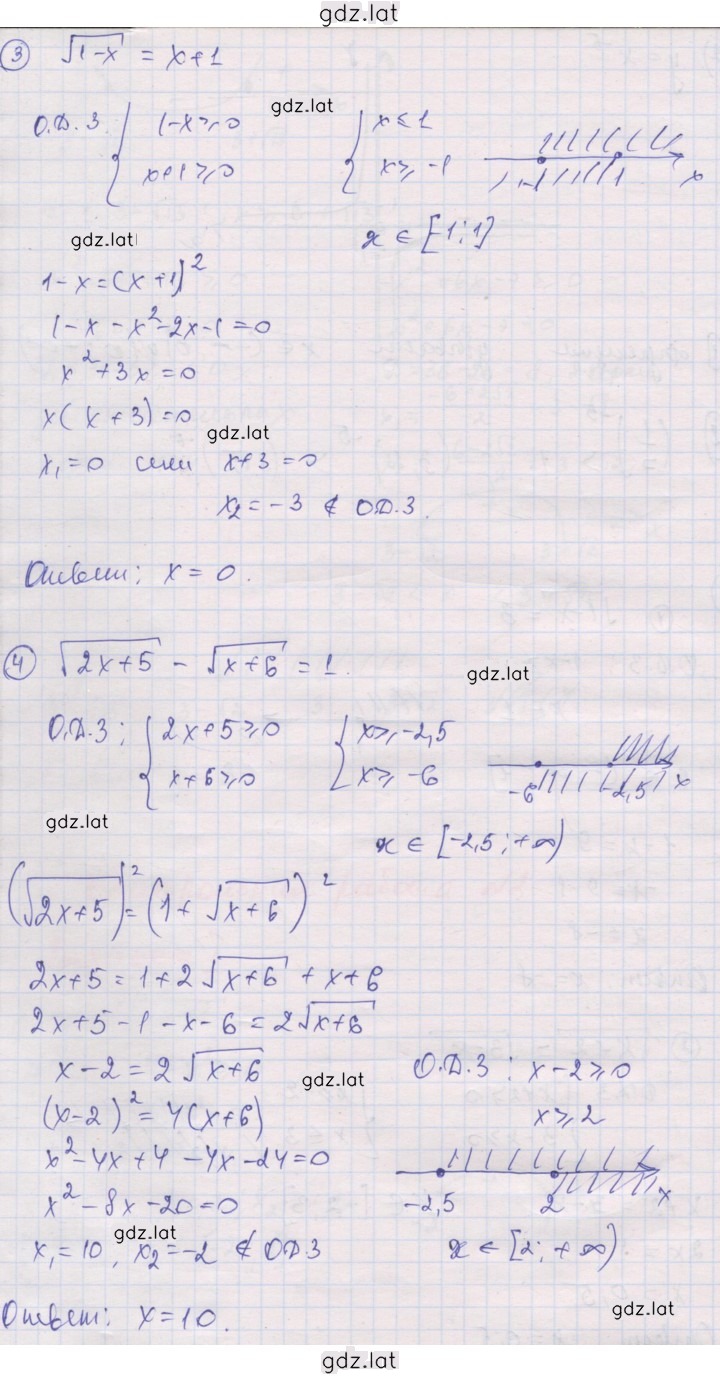 gdz.lat
③ √(1-x) = x+1
gdz.lat
О.Д.З. { 1-x ≥ 0 { x ≤ 1
x+1 ≥ 0 x ≥ -1 -1 1 x
gdz.lat x ∈ [-1; 1]
1-x = (x+1)²
1-x-x²-2x-1=0
x²+3x=0
x(x+3)=0
gdz.lat
x₁=0 или x+3=0
x₂=-3 ∉ О.Д.З.
Ответ: x=0.
④ √(2x+5) - √(x+6) = 1.
gdz.lat
О.Д.З: { 2x+5 ≥ 0 { x ≥ -2,5
x+6 ≥ 0 x ≥ -6 -6 -2,5 x
gdz.lat
x ∈ [-2,5; +∞)
(√(2x+5))² = (1+√(x+6))²
2x+5=1+2√(x+6)+x+6
2x+5-1-x-6=2√(x+6)
x-2=2√(x+6) О.Д.З: x-2≥0
gdz.lat
(x-2)²=4(x+6) x≥2
x²-4x+4-4x-24=0
x²-8x-20=0 -2,5 2 x
gdz.lat
x₁=10, x₂=-2 ∉ О.Д.З x ∈ [2; +∞)
Ответ: x=10.
gdz.lat
gdz.lat